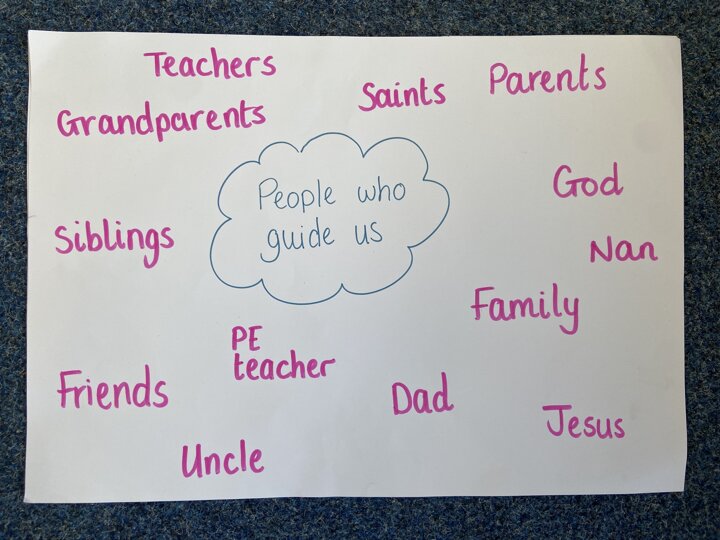 Teachers
Saints
Parents
Grandparents
People who
guide us
God
Siblings
Nan
Family
PE
teacher
Friends
Dad
Jesus
Uncle